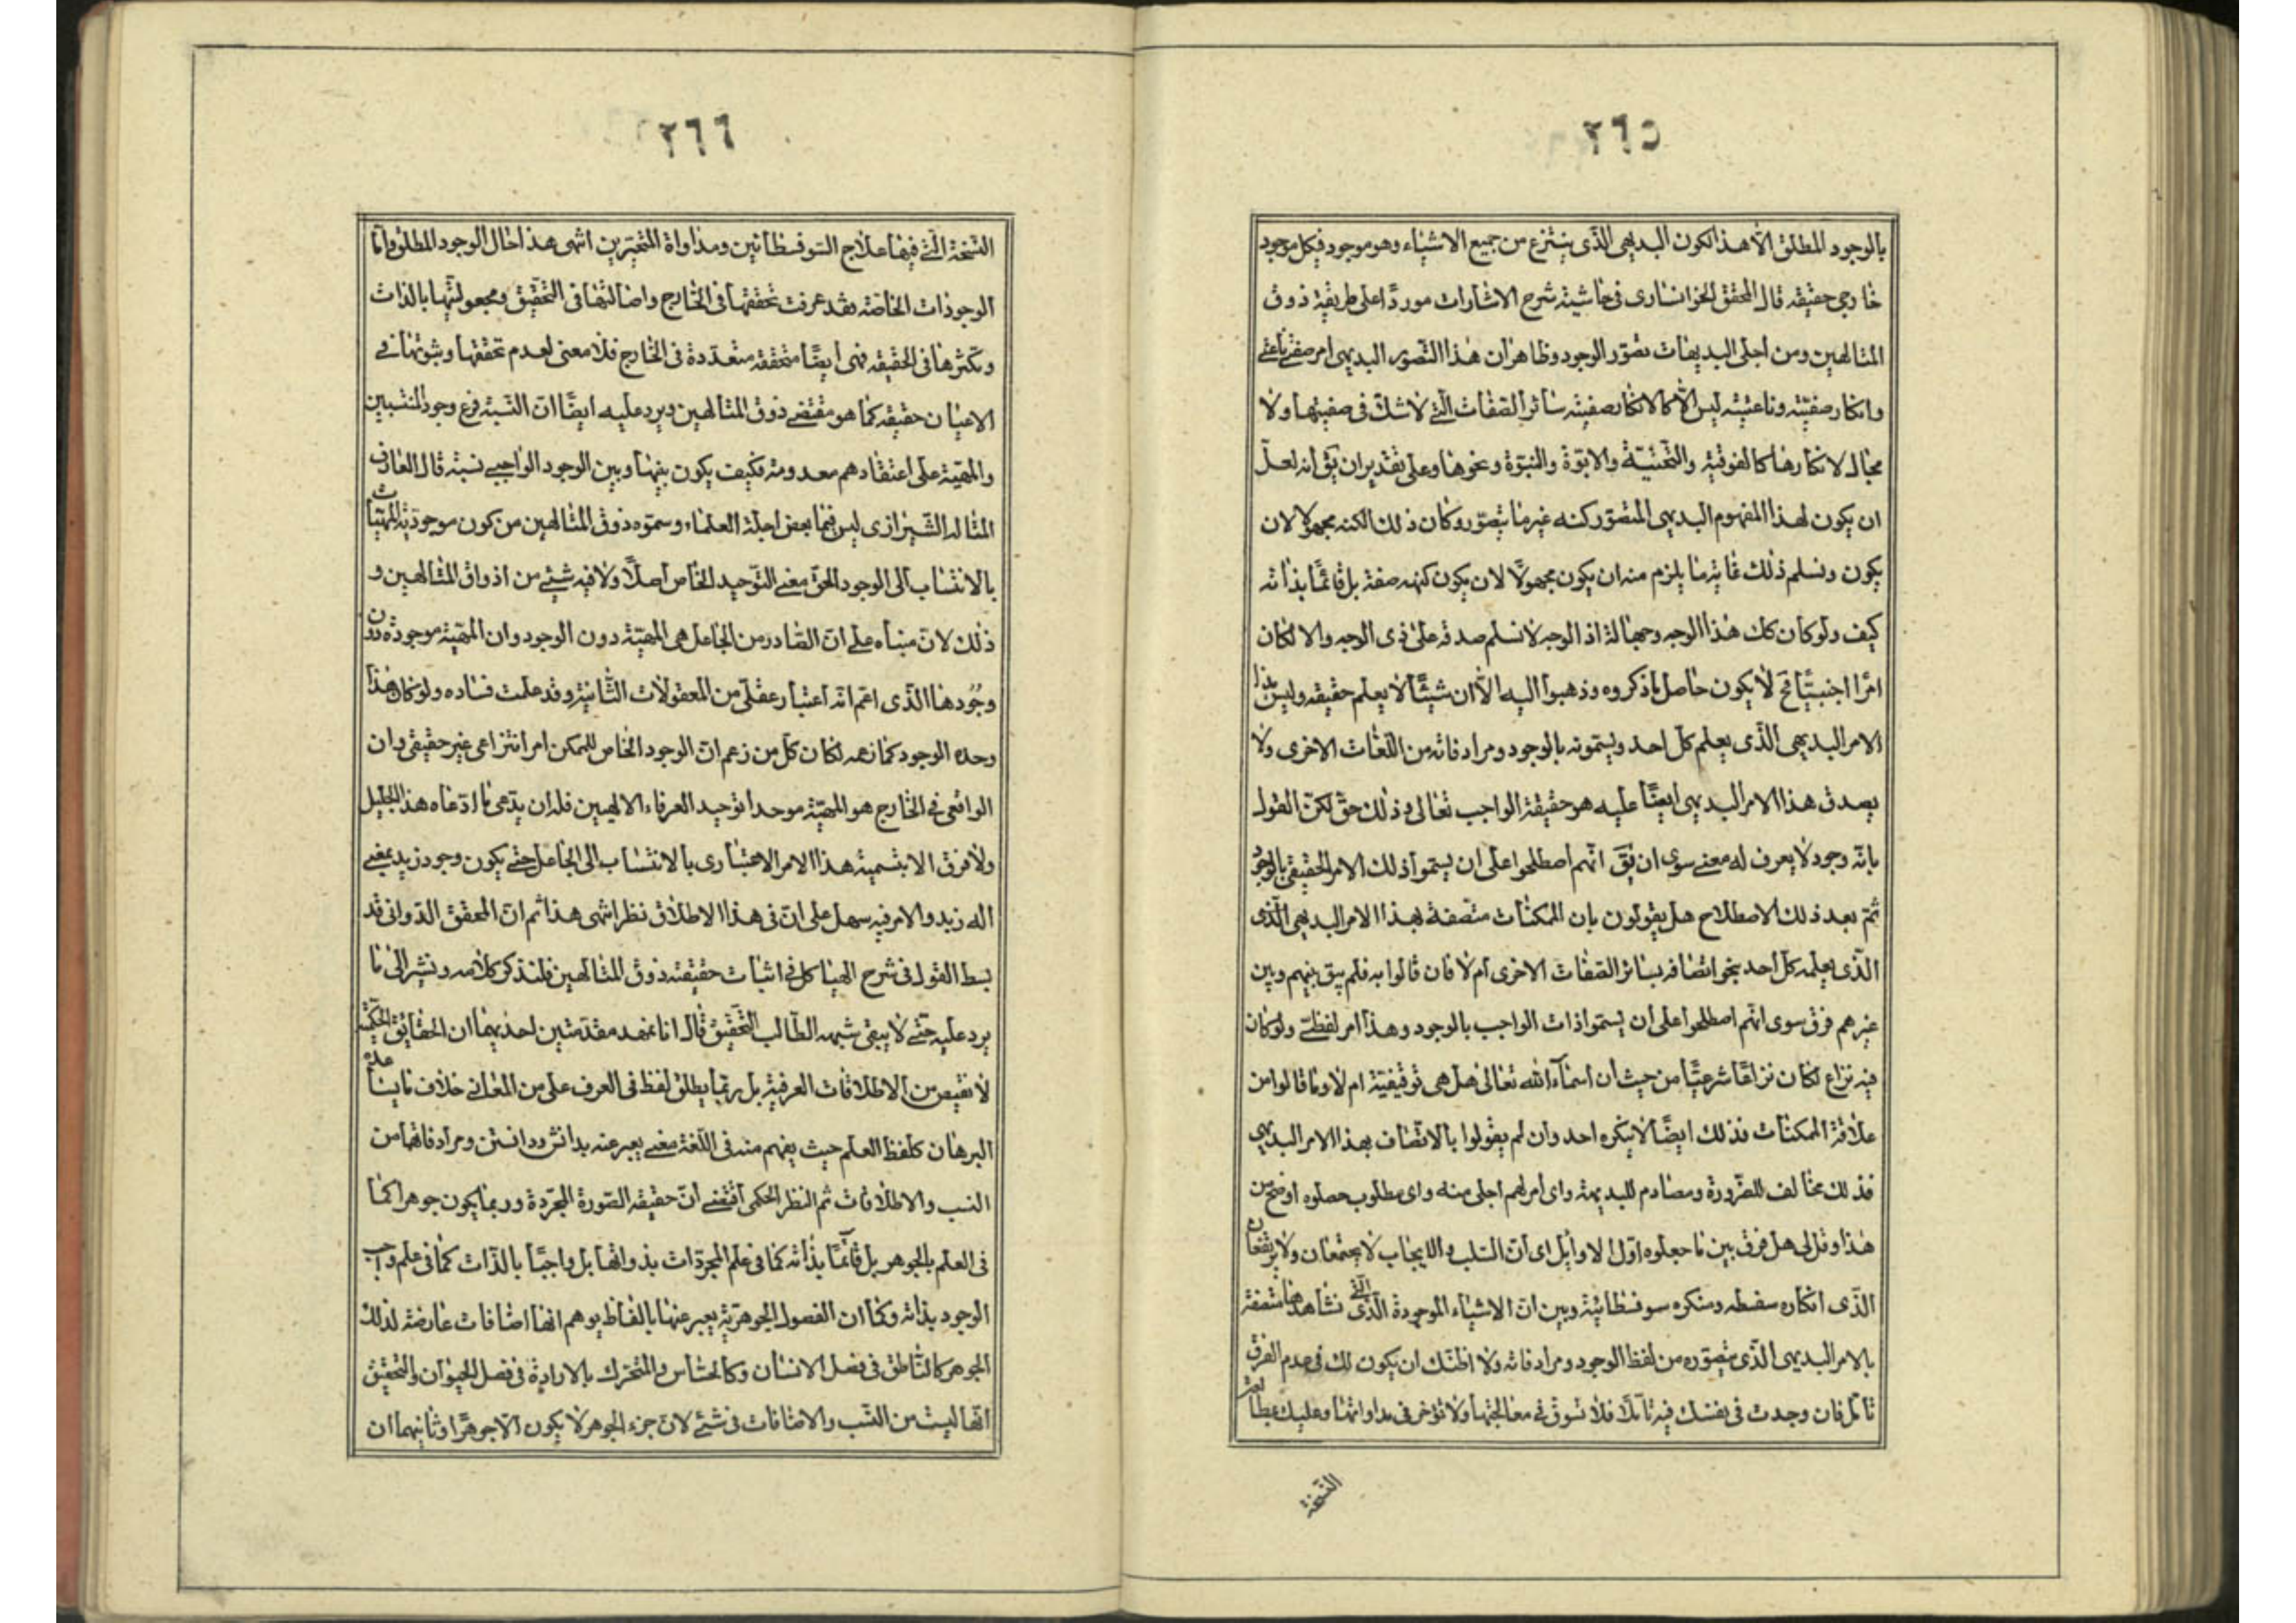 ٢٦٥
بالوجود المطلق الا هذا الكون البديهى الذى ينتزع من جميع الاشياء وهو موجود فى كل موجود
خارجى حقيقه قال المحقق الخوانسارى فى حاشية شرح الاشارات موردا على طريقة ذوق
المتالهين ومن اجلى البديهيات تصور الوجود وظاهر ان هذا التصور البديهى امر صفتى ناعتى
وانكار صفتيته وناعتيته ليس الا كالانكار صفيته سائر الصفات التى لا شك فى صفيتها ولا
مجال لانكارها كالفوقية والتحتية والابوة والنبوة ونحوها وعلى تقدير ان يق انه لعل
ان يكون لهذا المفهوم البديهى المتصور كنه غير ما يتصور وكان ذلك الكنه مجهولا لان
يكون ونسلم ذلك غاية ما يلزم منه ان يكون مجهولا لان يكون كنهه صفة بل قائما بذاته
كيف ولو كان كك هذا الوجه وجها له اذ الوجه لا نسلم صدقه على ذى الوجه والا لكان
امرا اجنبيا فح لا يكون حاصل ما ذكروه وذهبوا اليه الا ان شيئا لا يعلم حقيقه وليس هذا
الامر البديهى الذى يعلم كل احد ويسمونه بالوجود ومرادفاته من اللغات الاخرى ولا
يصدق هذا الامر البديهى ايضا عليه هو حقيقة الواجب تعالى وذلك حق لكن القول
بانه وجود لا يعرف له معنى سوى ان يق انهم اصطلحوا على ان يسموا ذلك الامر الحقيقى بالوجود
ثم بعد ذلك الاصطلاح هل يقولون بان الممكنات متصفة بهذا الامر البديهى الذى
الذى يعلمه كل احد بنحو اتصافه بسائر الصفات الاخرى ام لا فان قالوا به فلم يبق بينهم وبين
غيرهم فرق سوى انهم اصطلحوا على ان يسموا ذات الواجب بالوجود وهذا امر لفظى ولو كان
فيه نزاع لكان نزاعا شرعيا من حيث ان اسماء الله تعالى هل هى توقيفية ام لا وما قالوا من
علاقة الممكنات فذلك ايضا لا ينكره احد وان لم يقولوا بالاتصاف بهذا الامر البديهى
فذلك مخالف للضرورة ومصادم للبديهة واى امر لهم اجلى منه واى مطلوب حصلوه اوضح من
هذا وقل لى هل فرق بين ما جعلوه اول الاوايل اى ان السلب والايجاب لا يجتمعان ولا يرتفعان
الذى انكاره سفسطه ومنكره سوفسطائية وبين ان الاشياء الموجودة الذى التى نشاهدها متصفة
بالامر البديهى الذى نتصوره من لفظ الوجود ومرادفاته ولا اظنك ان يكون لك فى عدم الفرق
تامل فان وجدت فى نفسك فيه تاملا فلا تسوق فى معالجتها ولا تؤخر فى مداواتها وعليك بمطالعة
النسخة
٢٦٦
النسخة التى فيها علاج السوفسطائين ومداواة المتحيرين انتهى هذا حال الوجود المطلق واما
الوجودات الخاصة فقد عرفت تحققها فى الخارج واصالتها فى التحقيق ومجعوليتها بالذات
وتكثرها فى الحقيقه فهى ايضا متحققه متعددة فى الخارج فلا معنى لعدم تحققها وثبوتها فى
الاعيان حقيقه كما هو مقتضى ذوق المتالهين ويرد عليه ايضا ان النسبة فرع وجود المنتسبين
والمهية على اعتقادهم معدومة فكيف يكون بينها وبين الوجود الواجبى نسبة قال العارف
المتاله الشيرازى ليس فيما بعض اجلة العلماء وسموه ذوق المتالهين من كون موجودية المهيات
بالانتساب الى الوجود الحق معنى التوحيد الخاص اصلا ولا فيه شئ من اذواق المتالهين و
ذلك لان مبناه على ان الصادر من الجاعل هى المهية دون الوجود وان المهية موجودة دون
وجودها الذى اعم انه اعتبار عقلى من المعقولات الثانية وقد علمت فساده ولو كان هذا
وحدة الوجود كما زعمه لكان كل من زعم ان الوجود الخاص للممكن امر انتزاعى غير حقيقى وان
الواقعى فى الخارج هو المهية موحدا توحيد العرفاء الالهيين فله ان يدعى ما ادعاه هذا الجليل
ولا فرق الا بتسمية هذا الامر الاعتبارى بالانتساب الى الجاعل حتى يكون وجود زيد بمعنى
اله زيد والامر فيه سهل على ان فى هذا الاطلاق نظر انتهى هذا ثم ان المحقق الدوانى قد
بسط القول فى شرح الهياكل فى اثبات حقيقته ذوق المتالهين فلنذكر كلامه ونشير الى ما
يرد عليه حتى لا يبقى شبهه الطالب التحقيق قال انا نمهد مقدمتين احديهما ان الحقايق الحكمية
لا تقتبص من الاطلاقات العرفية بل ربما يطلق لفظ فى العرف على من المعانى خلاف ما يساعده
البرهان كلفظ العلم حيث يفهم منه فى اللغة معنى يعبر عنه بدانش ودانستن ومرادفاتها من
النسب والاطلاقات ثم النظر الحكمى اقتضى ان حقيقه الصورة المجردة وربما يكون جوهرا كما
فى العلم بالجوهر بل قائما بذاته كما فى علم المجردات بذواتها بل واجبا بالذات كما فى علم واجب
الوجود بذاته وكما ان الفصول الجوهرية يعبر عنها بالفاظ يوهم انها اضافات عارضة لذلك
الجوهر كالناطق فى فصل الانسان وكالحساس والمتحرك بالارادة فى فصل الحيوان والتحقيق
انها ليست من النسب والاضافات فى شئ لان جزء الجوهر لا يكون الا جوهرا وثانيهما ان